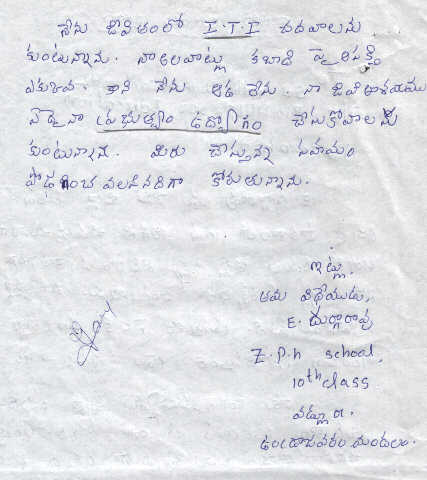 నేను జీవితంలో I.T.I చదవాలను
కుంటున్నాను. నా అలవాట్లు కబాడి పై ఆసక్తి
ఎకువ. కాని నేను ఆడ లేను. నా జీవితాశయము
నేనైనా ప్రభుత్వం ఉద్యోగం చేసుకోవాలను
కుంటున్నాను. మీరు చేస్తున్న సహయం
పోడిగించ వలసినదిగా కోరుతున్నాను.
ఇట్లు,
తమ విధేయుడు,
E. దుర్గారావు
Z.P.h school,
10th class
వడ్లూరు.
ఉండ్రాజవరం మండలం.